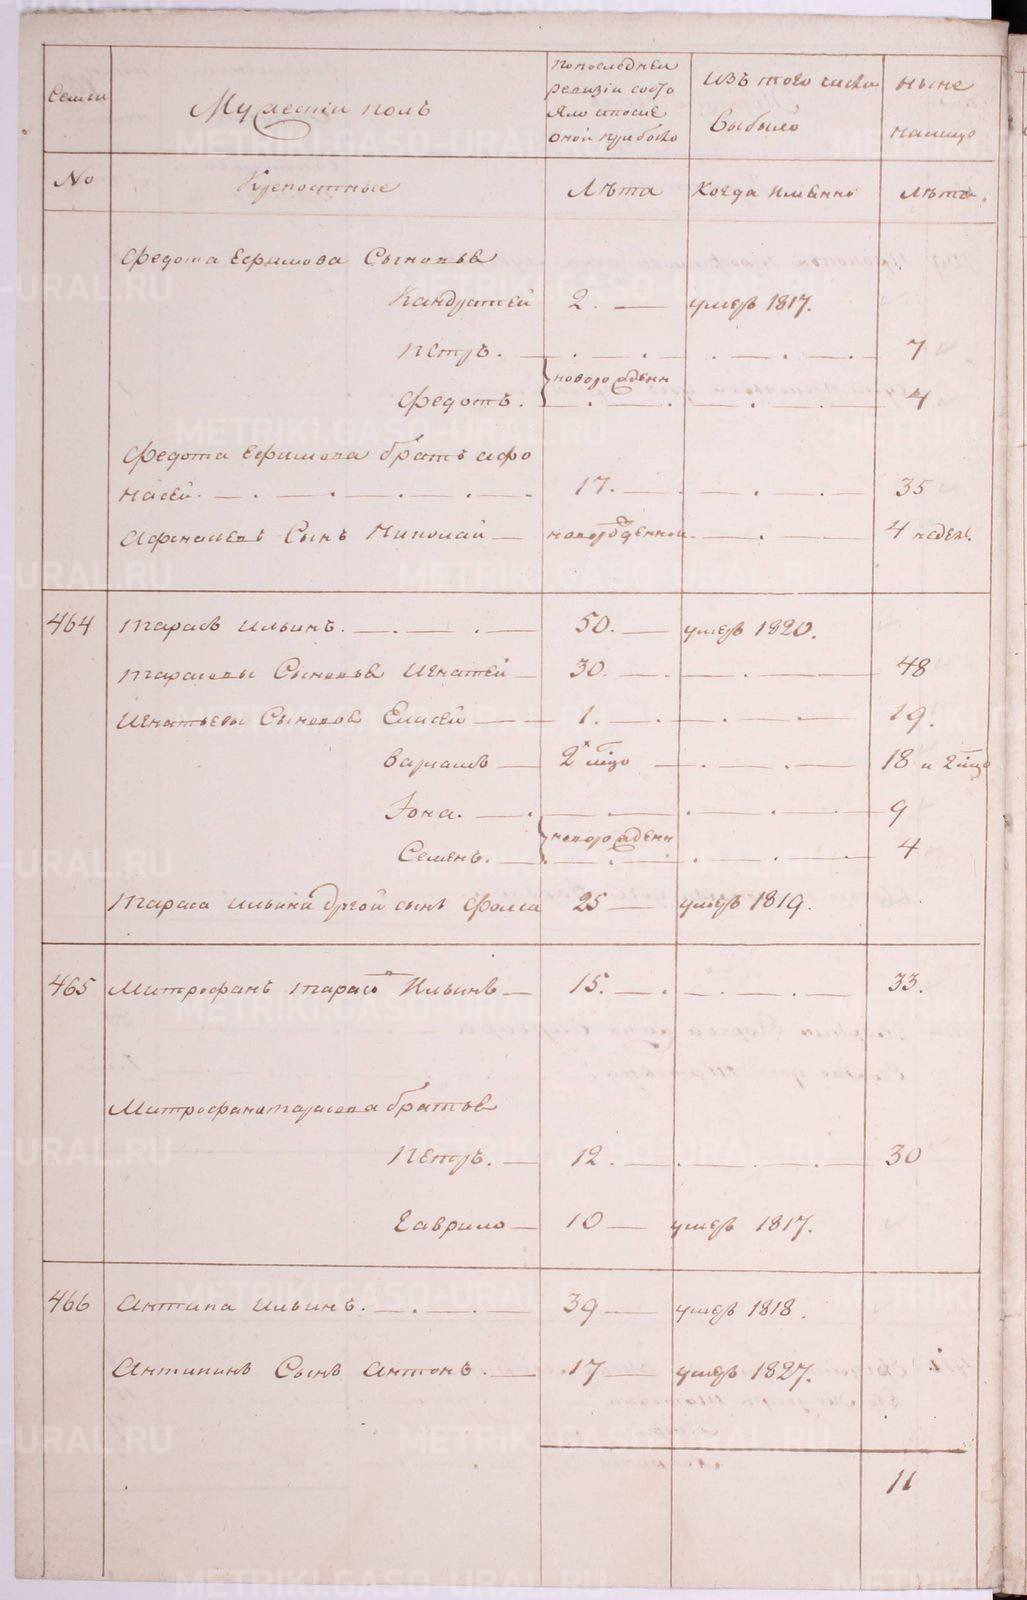 Семьи
Мужеский полъ
По последней
ревизіи состо
яло и после
оной прибыло
Изъ того числа
выбыло
ныне
налицо
No Крепостные Лѣта Когда именно Лѣта.
Федота Ефимова Сыновья
Кандратей 2. — умеръ 1817.
Петръ. 7
новорожденн
Федотъ. 4
Федота Ефимова братъ Афо
насей. 17. 35
Афанасьевъ Сынъ Николай новорожденной 4 недел.
464 Тарасъ Ильинъ. 50. умеръ 1820.
Тарасовы Сыновья Игнатей 30. 48
Игнатьевы Сыновья Елисей 1. 19.
Варламъ 18 и
Іона. 9
новорожденн
Семенъ. 4
Тараса Ильина другой сынъ Фома 25 умеръ 1819.
465 Митрофанъ Тарасо Ильинъ 15. 33.
Митрофана Тарасова братья
Петръ. 12. 30
Гаврило 10 умеръ 1817.
466 Антипа Ильинъ. 39 умеръ 1818.
Антипинъ Сынъ Антонъ. 17 умеръ 1827.
11
METRIKI.GASO-URAL.RU